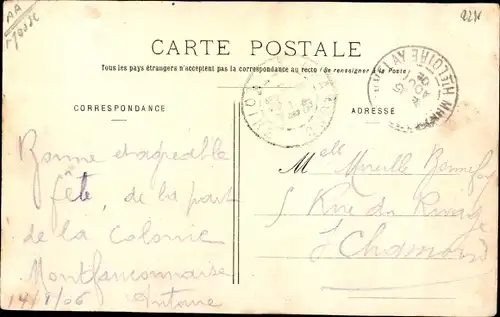 CARTE POSTALE
Tous les pays étrangers n'acceptent pas la correspondance au recto (Se renseigner à la Poste)
CORRESPONDANCE
ADRESSE
Bonne et agréable
fête, de la part
de la Colonie
Montfauconnaise
Antoine
Melle Mireille Bonnefoy
5 Rue du Rivage
St Chamond
HTE LOIRE